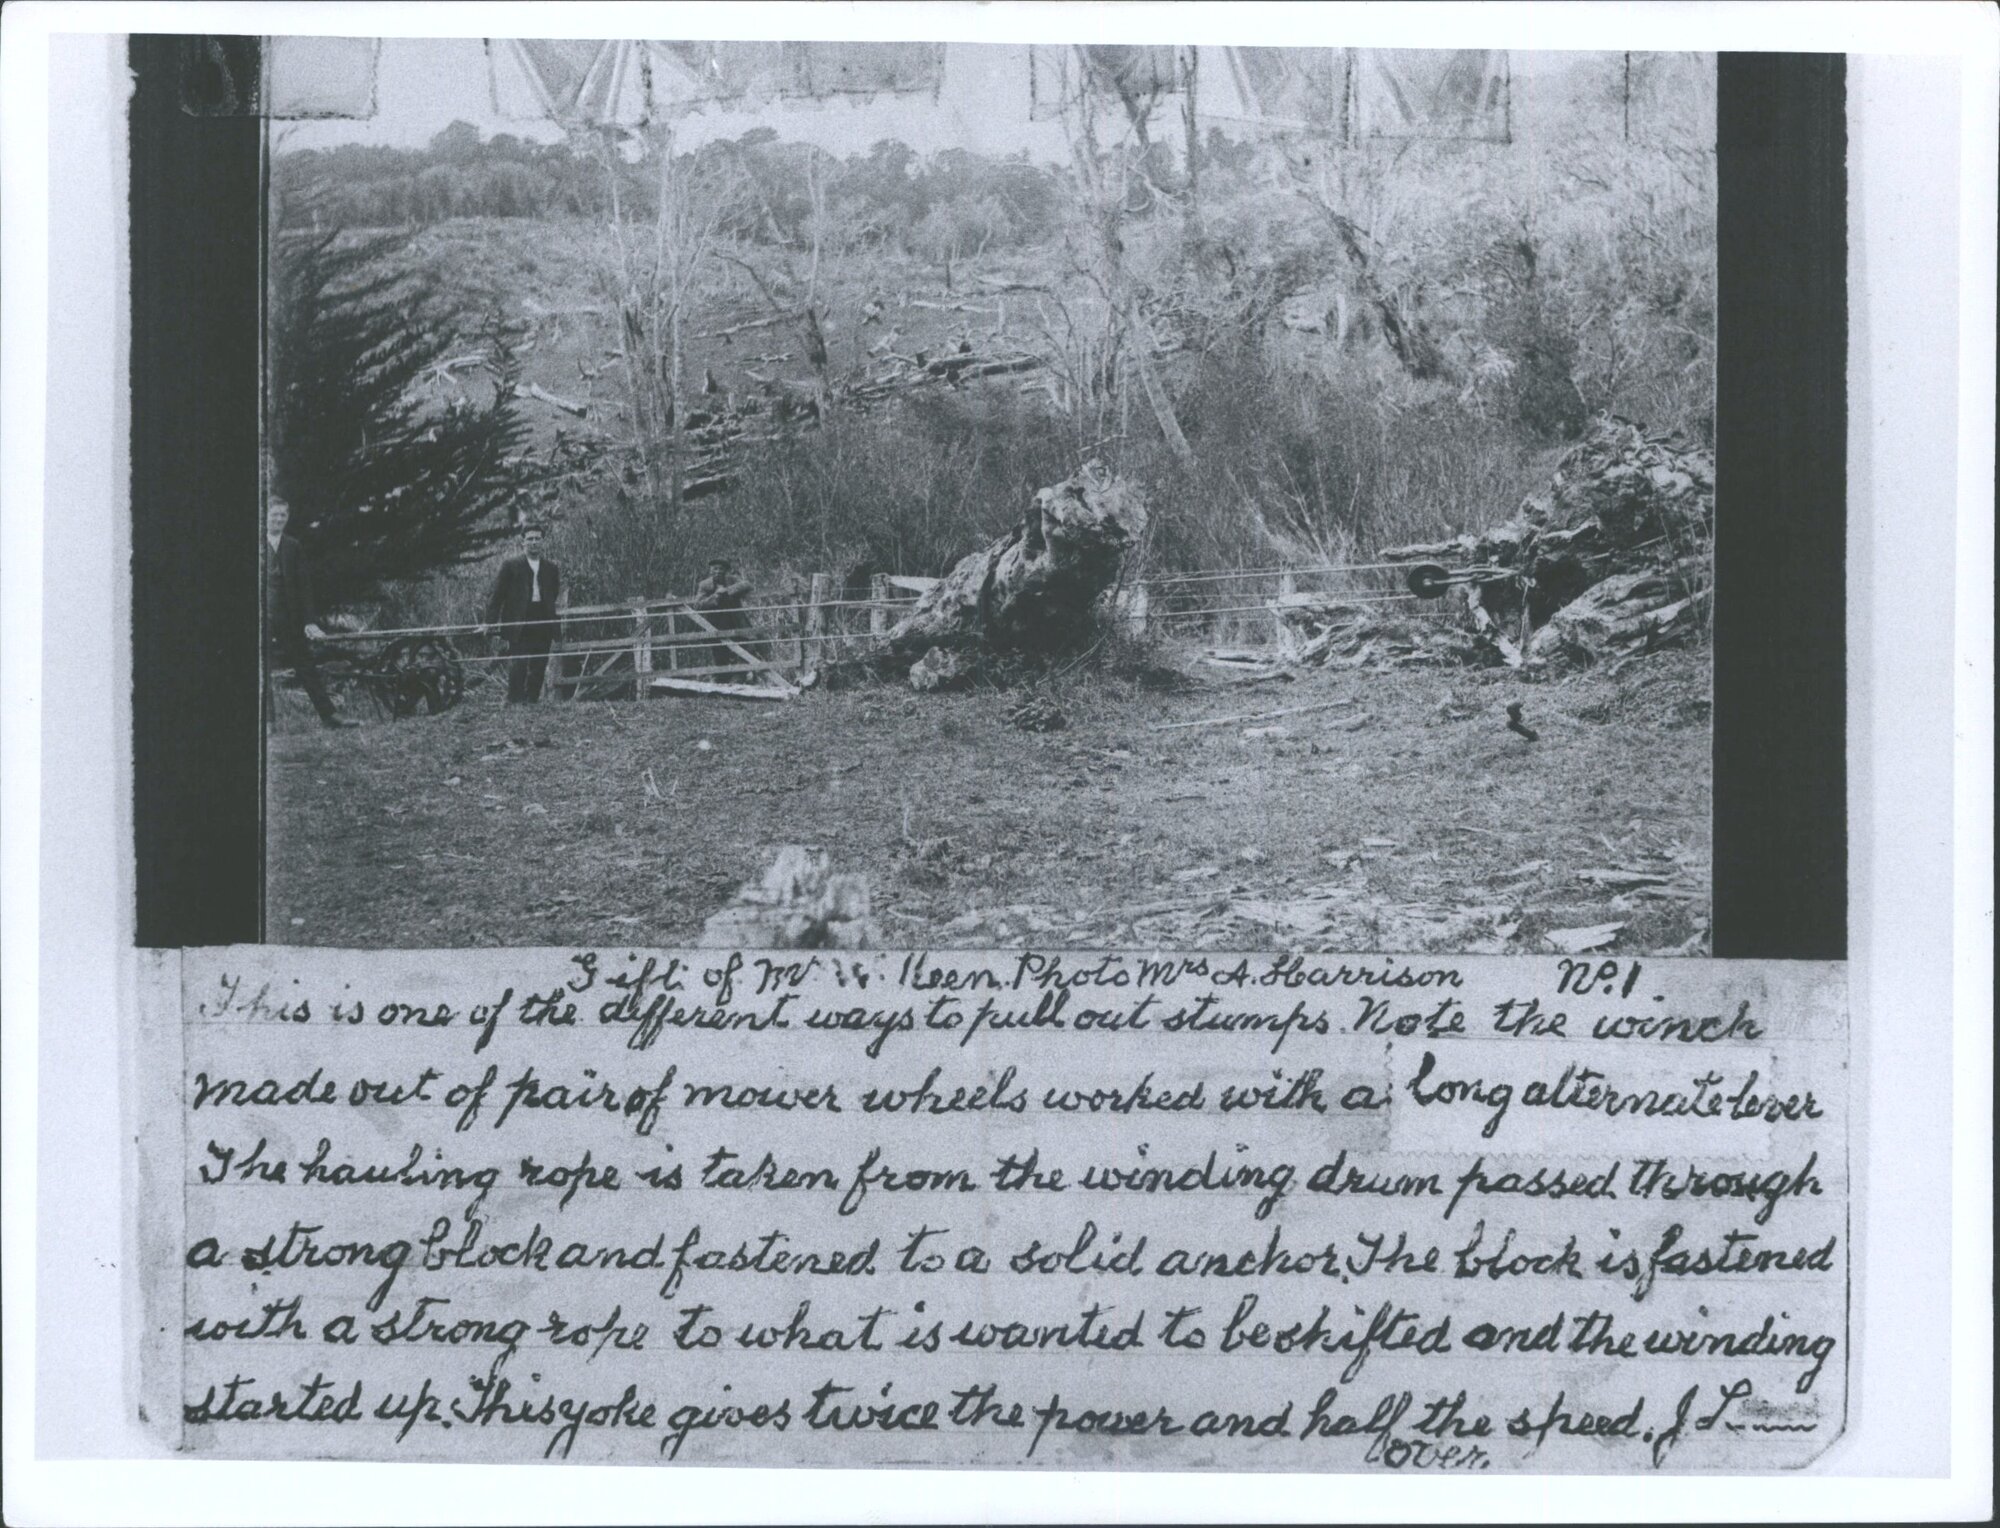 Gift of Mr W. Keen. Photo Mrs A. Harrison No. 1
This is one of the different ways to pull out stumps. Note the winch
made out of pair of mower wheels worked with a long alternate lever
The hauling rope is taken from the winding drum passed through
a strong block and fastened to a solid anchor. The block is fastened
with a strong rope to what is wanted to be shifted and the winding
started up. This yoke gives twice the power and half the speed. J
over.